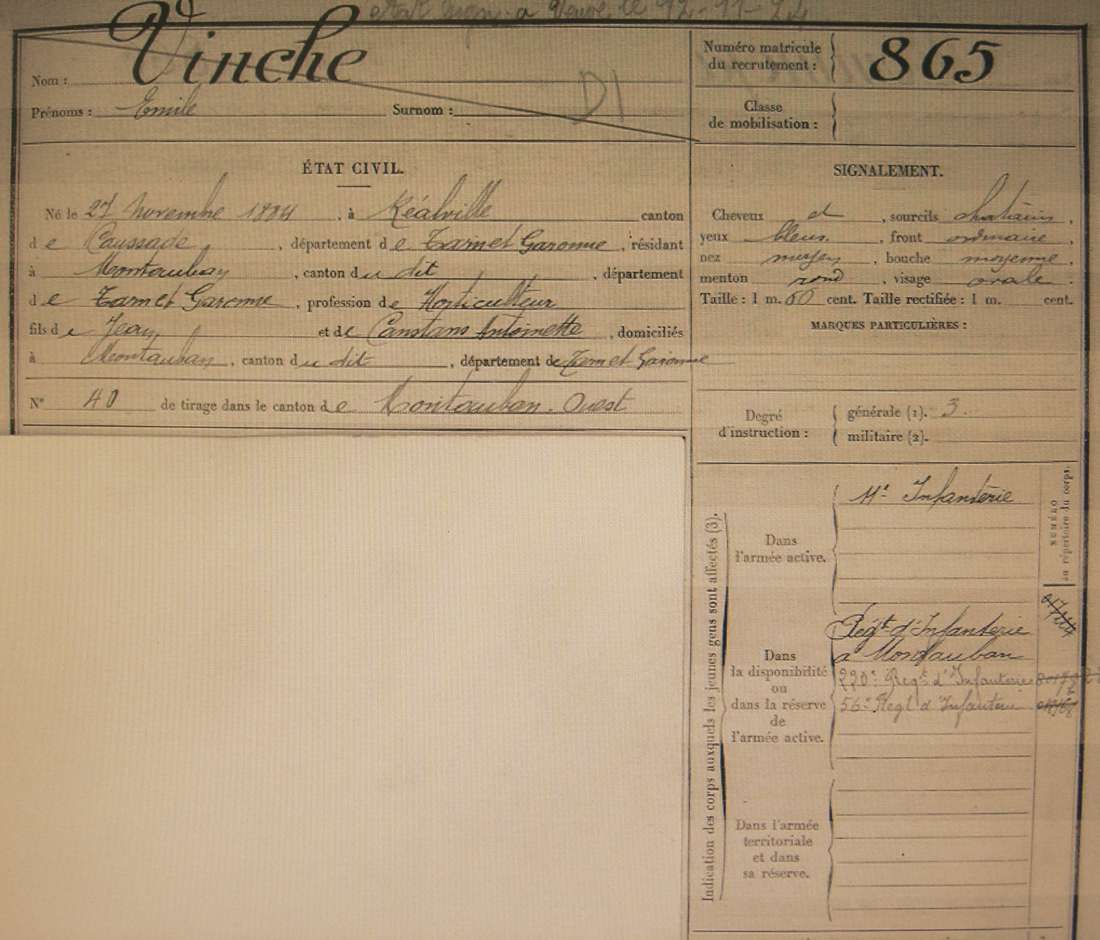 le 12-11-24
Nom : Vinche
Prénoms : Emile Surnom :
D1
Numéro matricule du recrutement : 865
Classe de mobilisation :
ÉTAT CIVIL.
Né le 27 Novembre 1884, à Réalville canton
de Caussade, département de Tarn et Garonne, résidant
à Montauban, canton du dit, département
de Tarn et Garonne, profession de Horticulteur
fils de Jean et de Constans Antoinette, domiciliés
à Montauban, canton du dit, département de Tarn et Garonne
N° 40 de tirage dans le canton de Montauban-Ouest
SIGNALEMENT.
Cheveux et, sourcils chatains,
yeux bleus, front ordinaire,
nez moyen, bouche moyenne,
menton rond, visage ovale.
Taille : 1 m. 60 cent. Taille rectifiée : 1 m. cent.
MARQUES PARTICULIÈRES :
Degré d'instruction :
générale (1). 3.
militaire (2).
Indication des corps auxquels les jeunes gens sont affectés (3).
NUMÉRO
au répertoire du corps.
Dans
l'armée active.
11e Infanterie
Dans
la disponibilité
ou
dans la réserve
de
l'armée active.
Régt d'Infanterie
a Montauban
220e Régt d'Infanterie
56e Régt d'Infanterie
Dans l'armée
territoriale
et dans
sa réserve.